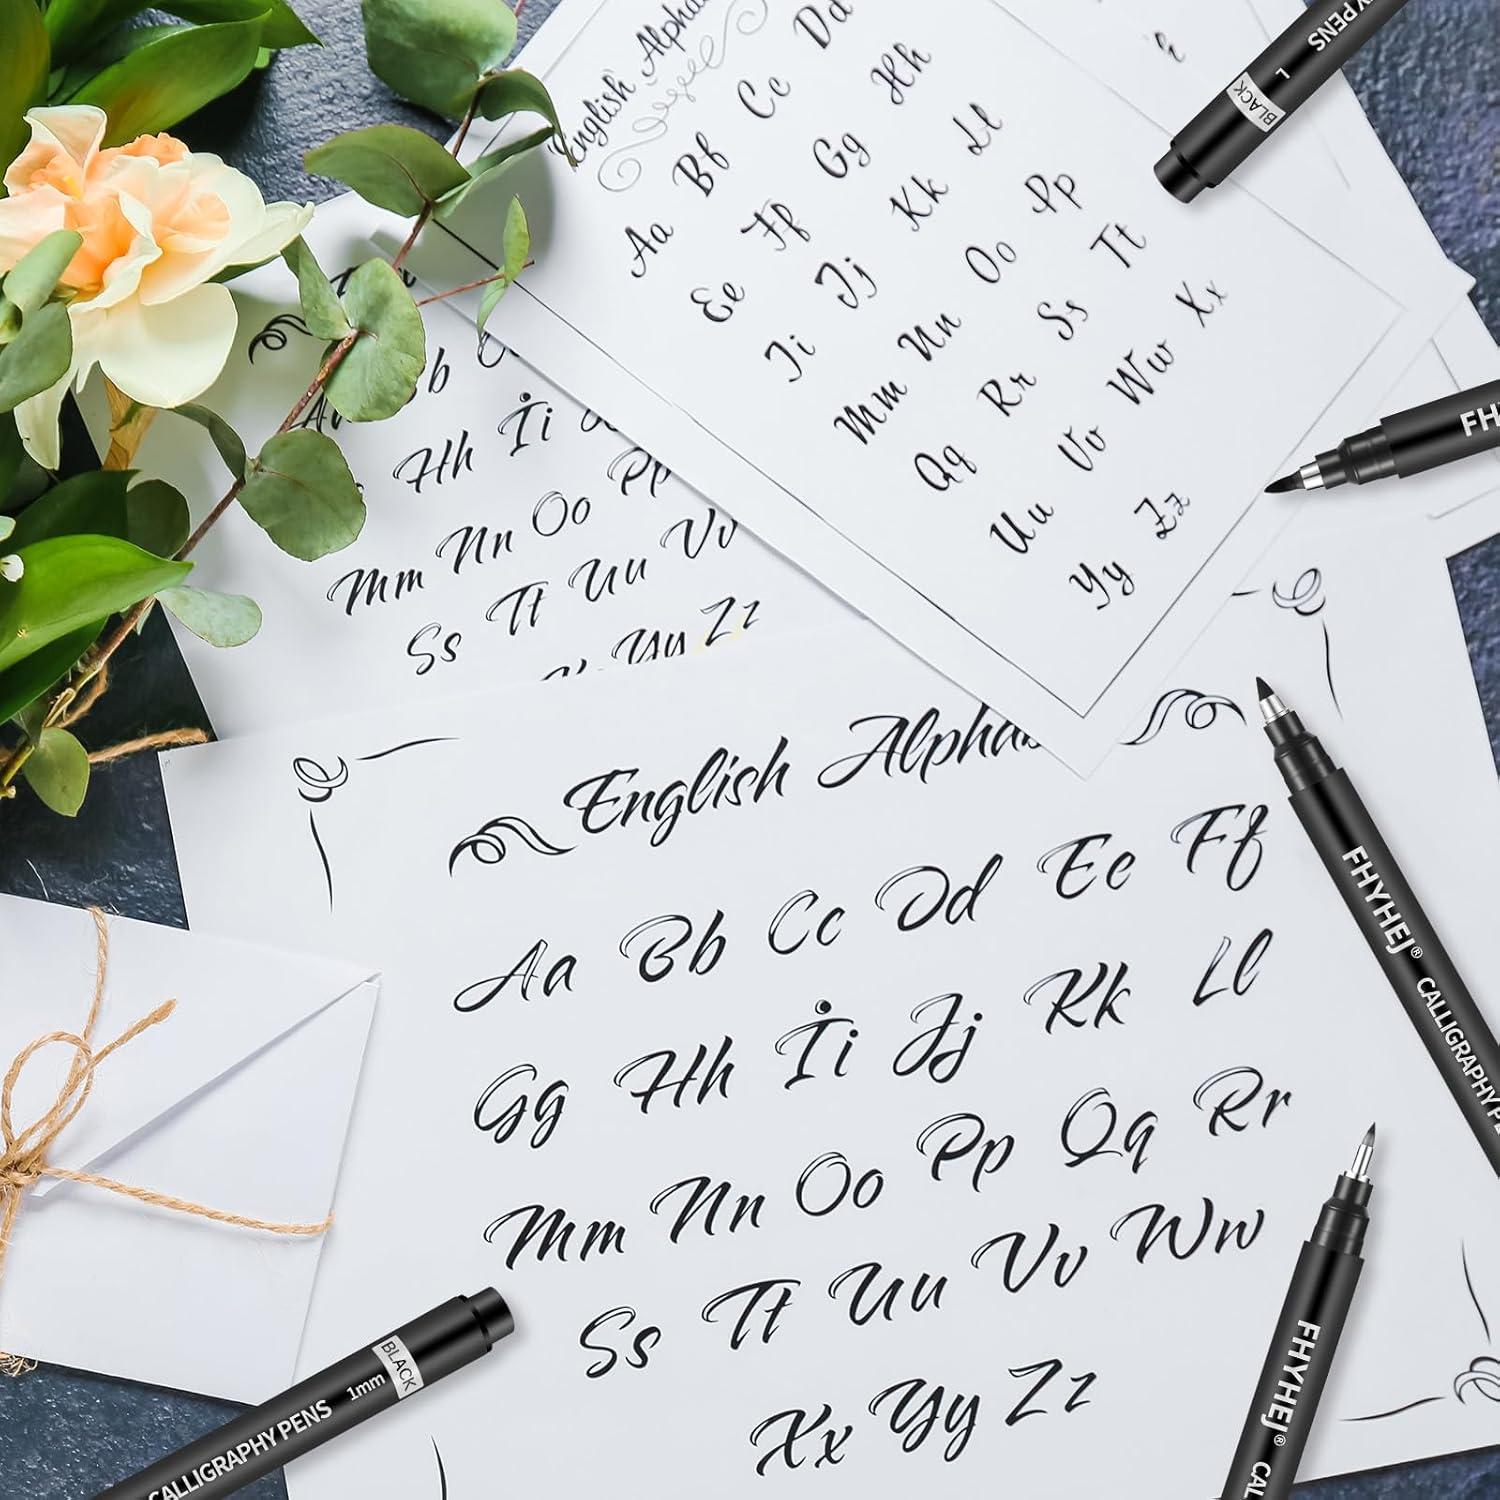 English Alpha
Aa Bb Cc Dd
Ee Ff Gg Hh
Ii Jj Kk Ll
Mm Nn Oo Pp
Qq Rr Ss Tt
Uu Vv Ww Xx
Yy Zz
Y PENS L BLACK
FH
Hh Ii
Mm Nn Oo Pp
Ss Tt Uu Vv
Yy Zz
English Alphab
Aa Bb Cc Dd Ee Ff
Gg Hh Ii Jj Kk Ll
Mm Nn Oo Pp Qq Rr
Ss Tt Uu Vv Ww
Xx Yy Zz
FHYHEJ® CALLIGRAPHY PE
FHYHEJ® CAL
CALLIGRAPHY PENS 1mm BLACK